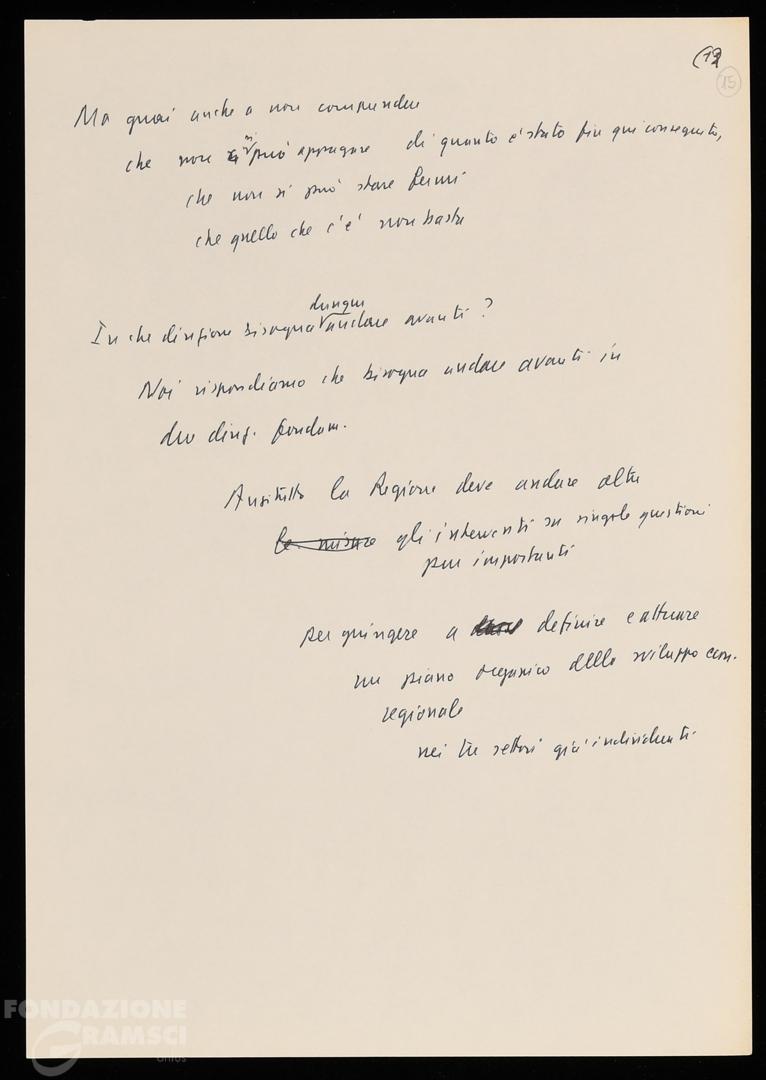 (12
15
Ma guai anche a non comprendere
che non ci si può appagare di quanto è stato fin qui conseguito,
che non si può stare fermi
che quello che c'è non basta
dunque
In che direzione bisogna andare avanti?
Noi rispondiamo che bisogna andare avanti in
due direz. fondam.
Anzitutto la Regione deve andare oltre
le misure gli interventi su singole questioni
pur importanti
per giungere a definire e attuare
un piano organico dello sviluppo econ.
regionale
nei tre settori già individuati
FONDAZIONE
GRAMSCI
onlus